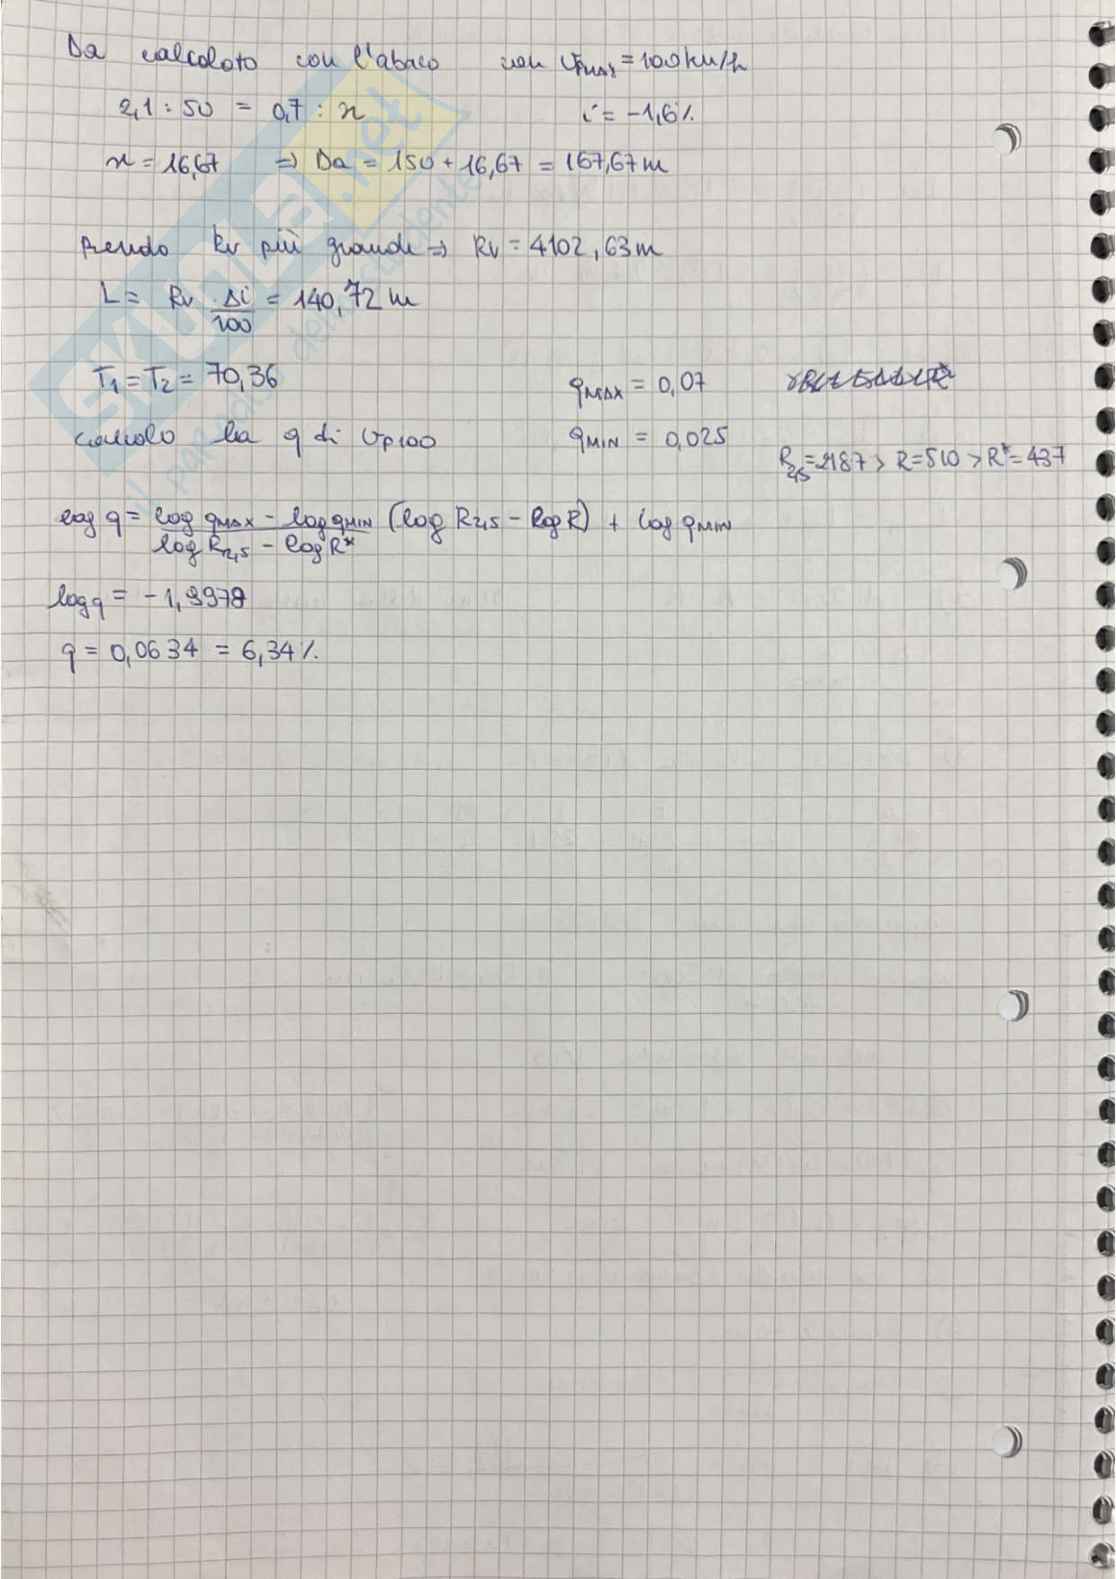 Da calcolato con l'abaco con Vpmax = 100 km/h
2,1 : 50 = 0,7 : x i = -1,6%
x = 16,67 ⇒ Da = 150 + 16,67 = 167,67 m
Prendo Rv più grande ⇒ Rv = 4102,63 m
L = Rv Δi/100 = 140,72 m
T1 = T2 = 70,36 qMAX = 0,07
calcolo la q di Vp100 qMIN = 0,025
R2,5 = 2187 > R = 510 > R* = 437
log q = (log qMAX - log qMIN)/(log R2,5 - log R*) (log R2,5 - log R) + log qMIN
log q = -1,9978
q = 0,0634 = 6,34%
SKUOLA.net